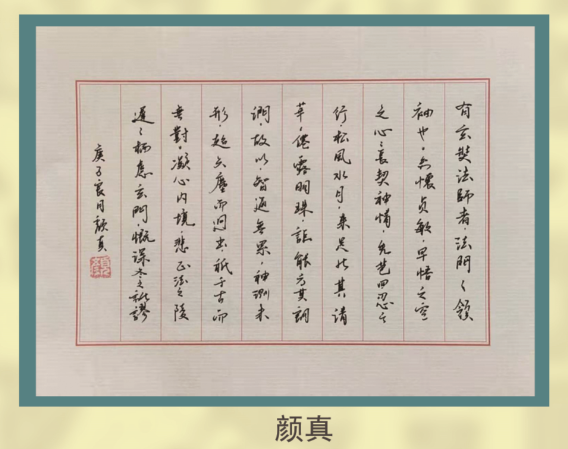 有玄奘法師者法門之領
袖也幼懷貞敏早悟三空
之心長契神情先苞四忍之
行松風水月未足比其清
華僊露明珠詎能方其朗
潤故以智通無累神測未
形超六塵而迥出祇千古而
無對凝心内境悲正法之陵
遲栖慮玄門慨深文之訛謬
庚子良月顏真
颜真